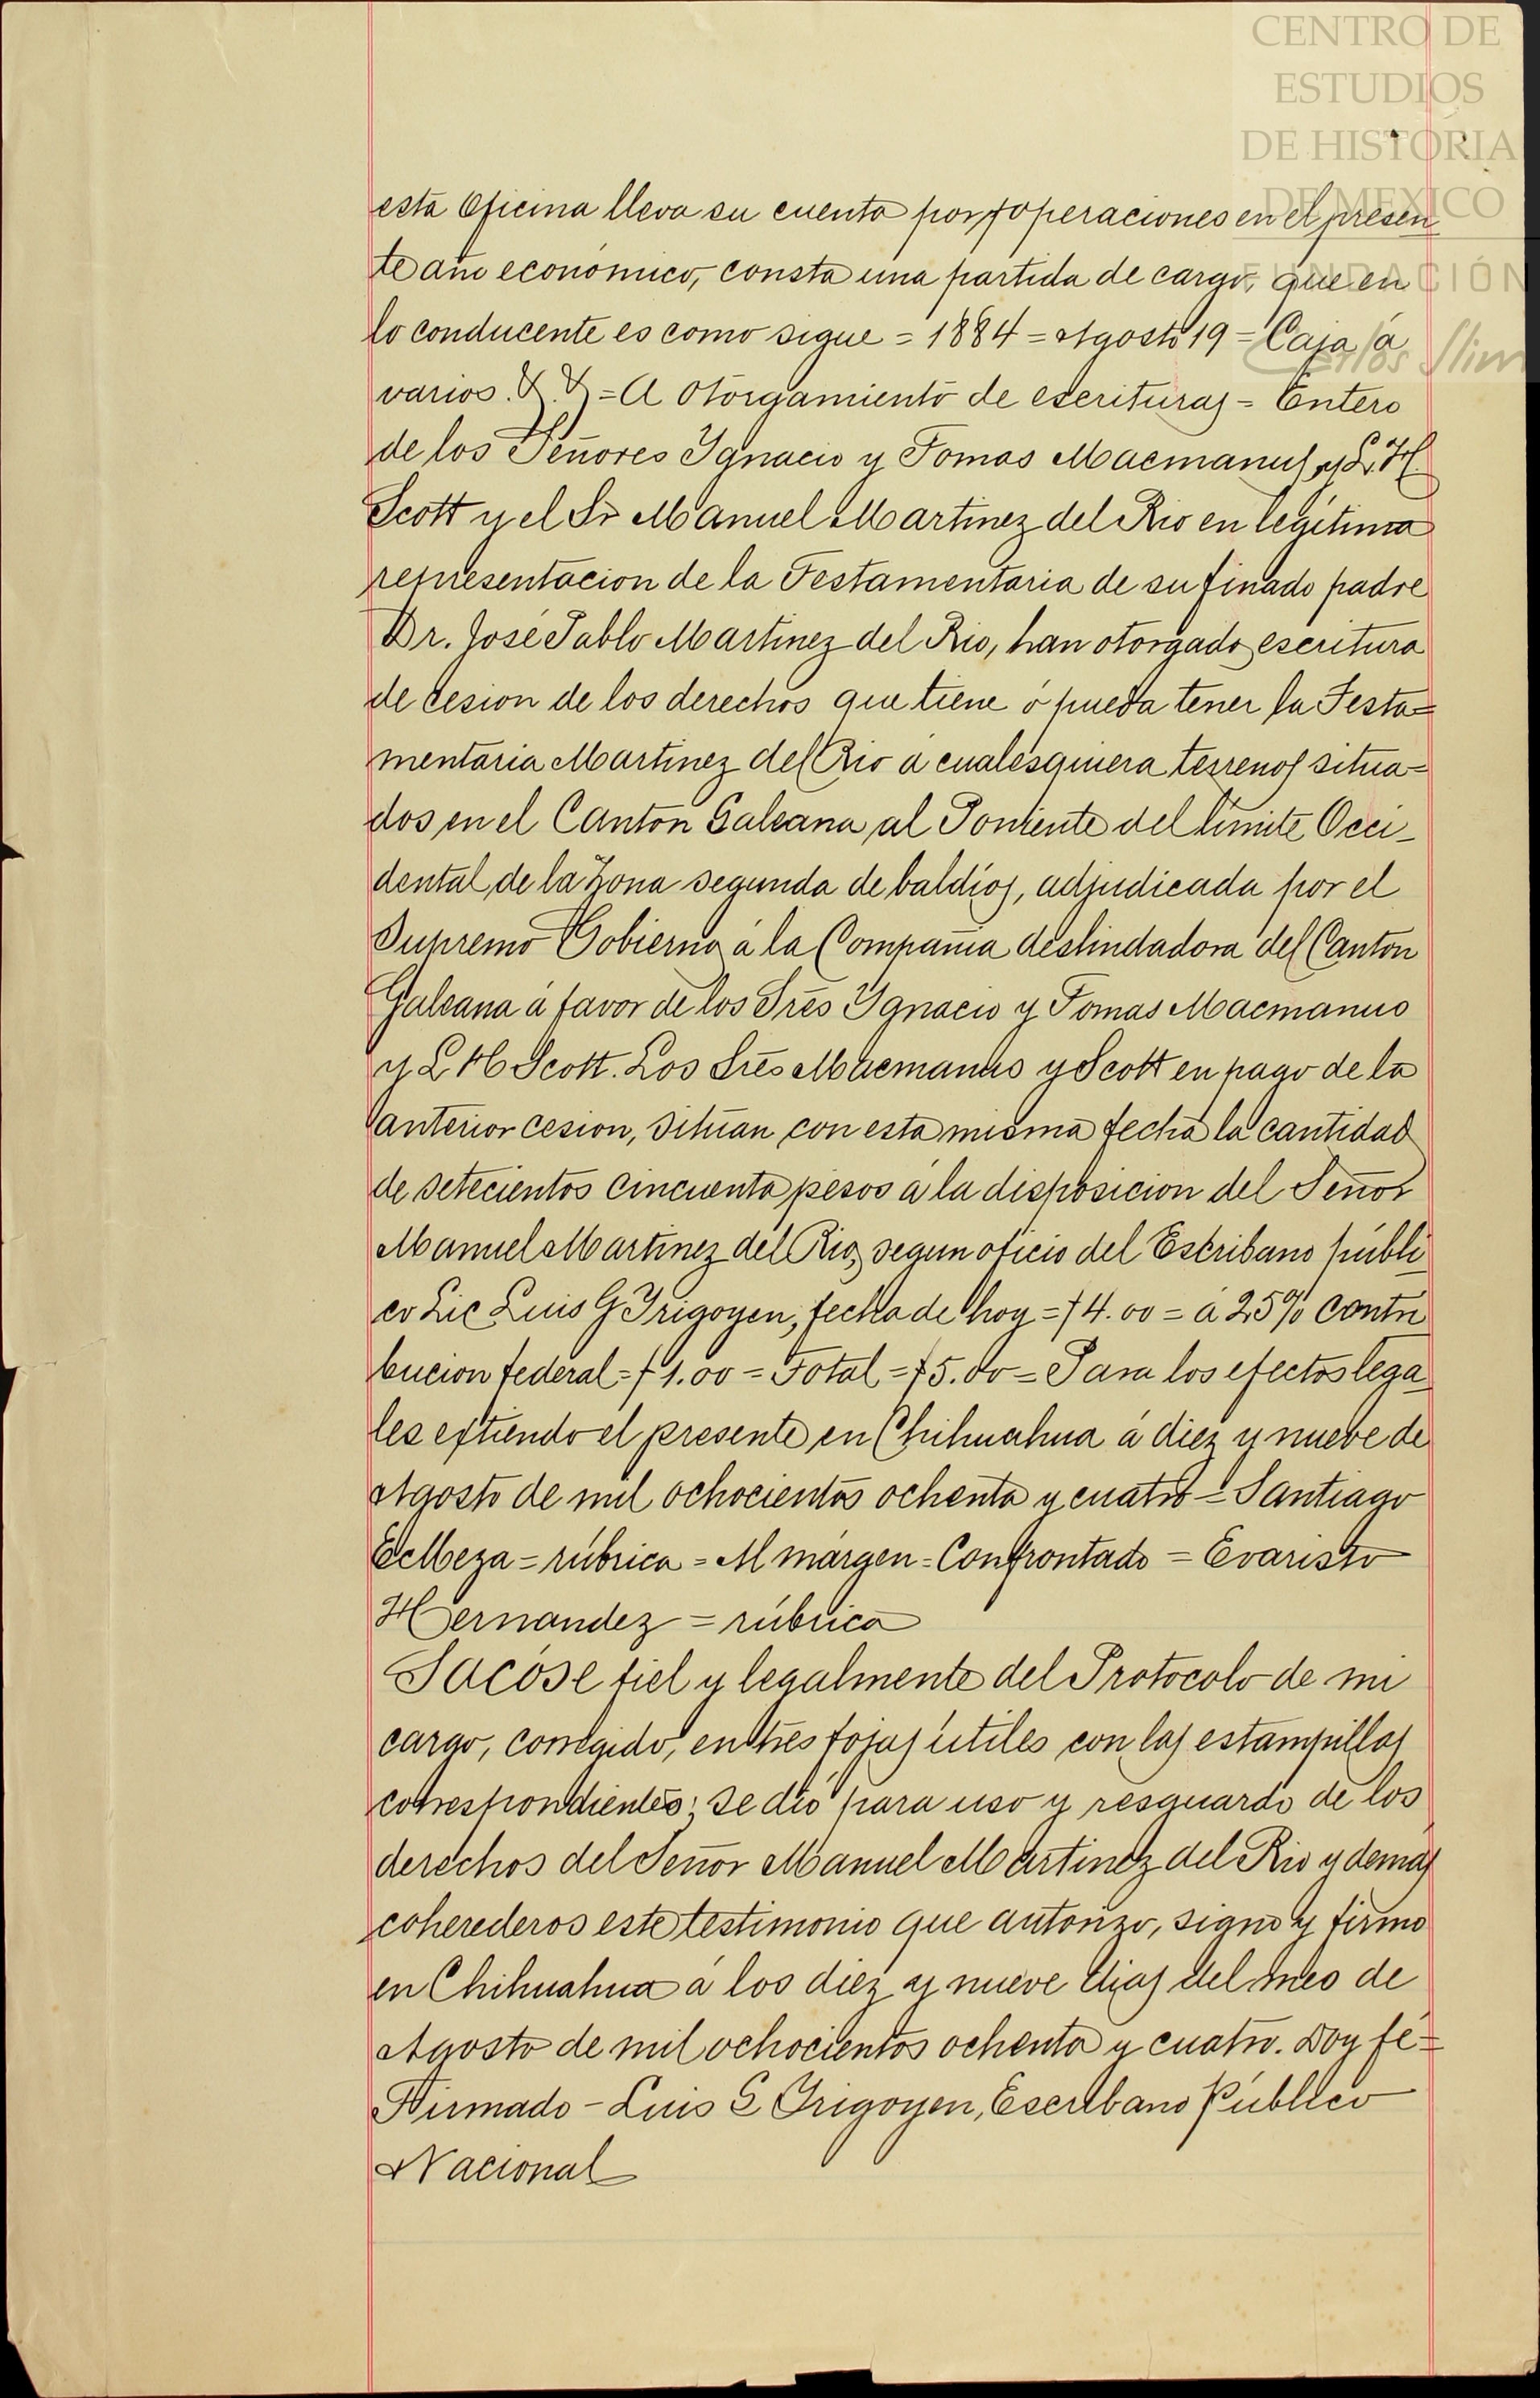 CENTRO DE
ESTUDIOS
DE HISTORIA
DE MEXICO
FUNDACIÓN
Carlos Slim
esta Oficina lleva su cuenta por operaciones en el presen
te año económico, consta una partida de cargo, que en
lo conducente es como sigue = 1884 = Agosto 19 = Caja á
varios. & & = A Otorgamiento de escrituras = Entero
de los Señores Ygnacio y Tomas Macmanus y L. H.
Scott y el Sr Manuel Martinez del Rio en legítima
representacion de la Testamentaria de su finado padre
Dr. José Pablo Martinez del Rio, han otorgado escritura
de cesion de los derechos que tiene ó pueda tener la Testa=
mentaria Martinez del Rio á cualesquiera terrenos situa=
dos en el Canton Galeana al Poniente del límite Occi-
dental de la Zona segunda de baldíos, adjudicada por el
Supremo Gobierno á la Compañia deslindadora del Canton
Galeana á favor de los Sres Ygnacio y Tomas Macmanus
y L H Scott. Los Sres Macmanus y Scott en pago de la
anterior cesion, situan con esta misma fecha la cantidad
de setecientos cincuenta pesos á la disposicion del Señor
Manuel Martinez del Rio, segun oficio del Escribano públi
co Lic Luis G Yrigoyen, fecha de hoy = $4.00 = á 25% contri
bucion federal = $1.00 = Total = $5.00 = Para los efectos lega
les extiendo el presente en Chihuahua á diez y nueve de
Agosto de mil ochocientos ochenta y cuatro = Santiago
E Meza = rúbrica = Al márgen = Confrontado = Evaristo
Hernandez = rúbrica
Sacóse fiel y legalmente del Protocolo de mi
cargo, corregido, en tres fojas útiles con las estampillas
correspondientes; se dió para uso y resguardo de los
derechos del Señor Manuel Martinez del Rio y demas
coherederos este testimonio que autorizo, signo y firmo
en Chihuahua á los diez y nueve dias del mes de
Agosto de mil ochocientos ochenta y cuatro. Doy fé =
Firmado - Luis G Yrigoyen, Escribano Público
Nacional